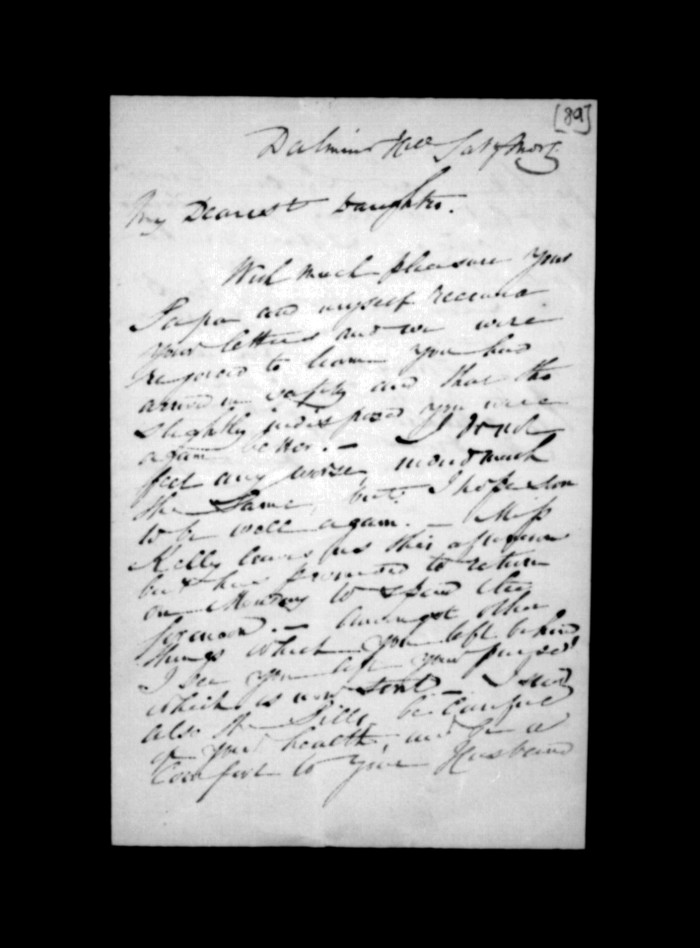 [89]
Hill Saty Morg
My Dearest Daughter.
With much pleasure your
Papa and myself received
your letters and we were
rejoiced to learn you had
arrived in safety and that tho
slightly indisposed you were
again better. — I do not
feel any worse, much
the Same, but I hope soon
to be well again. — Miss
Kelly leaves us this afternoon
but has promised to return
on Monday to spend the
forenoon. — Amongst other
things which you left behind
I see you left your purse
which is now sent — I send
also the Pills, be careful
of your health, and be a
Comfort to your Husband